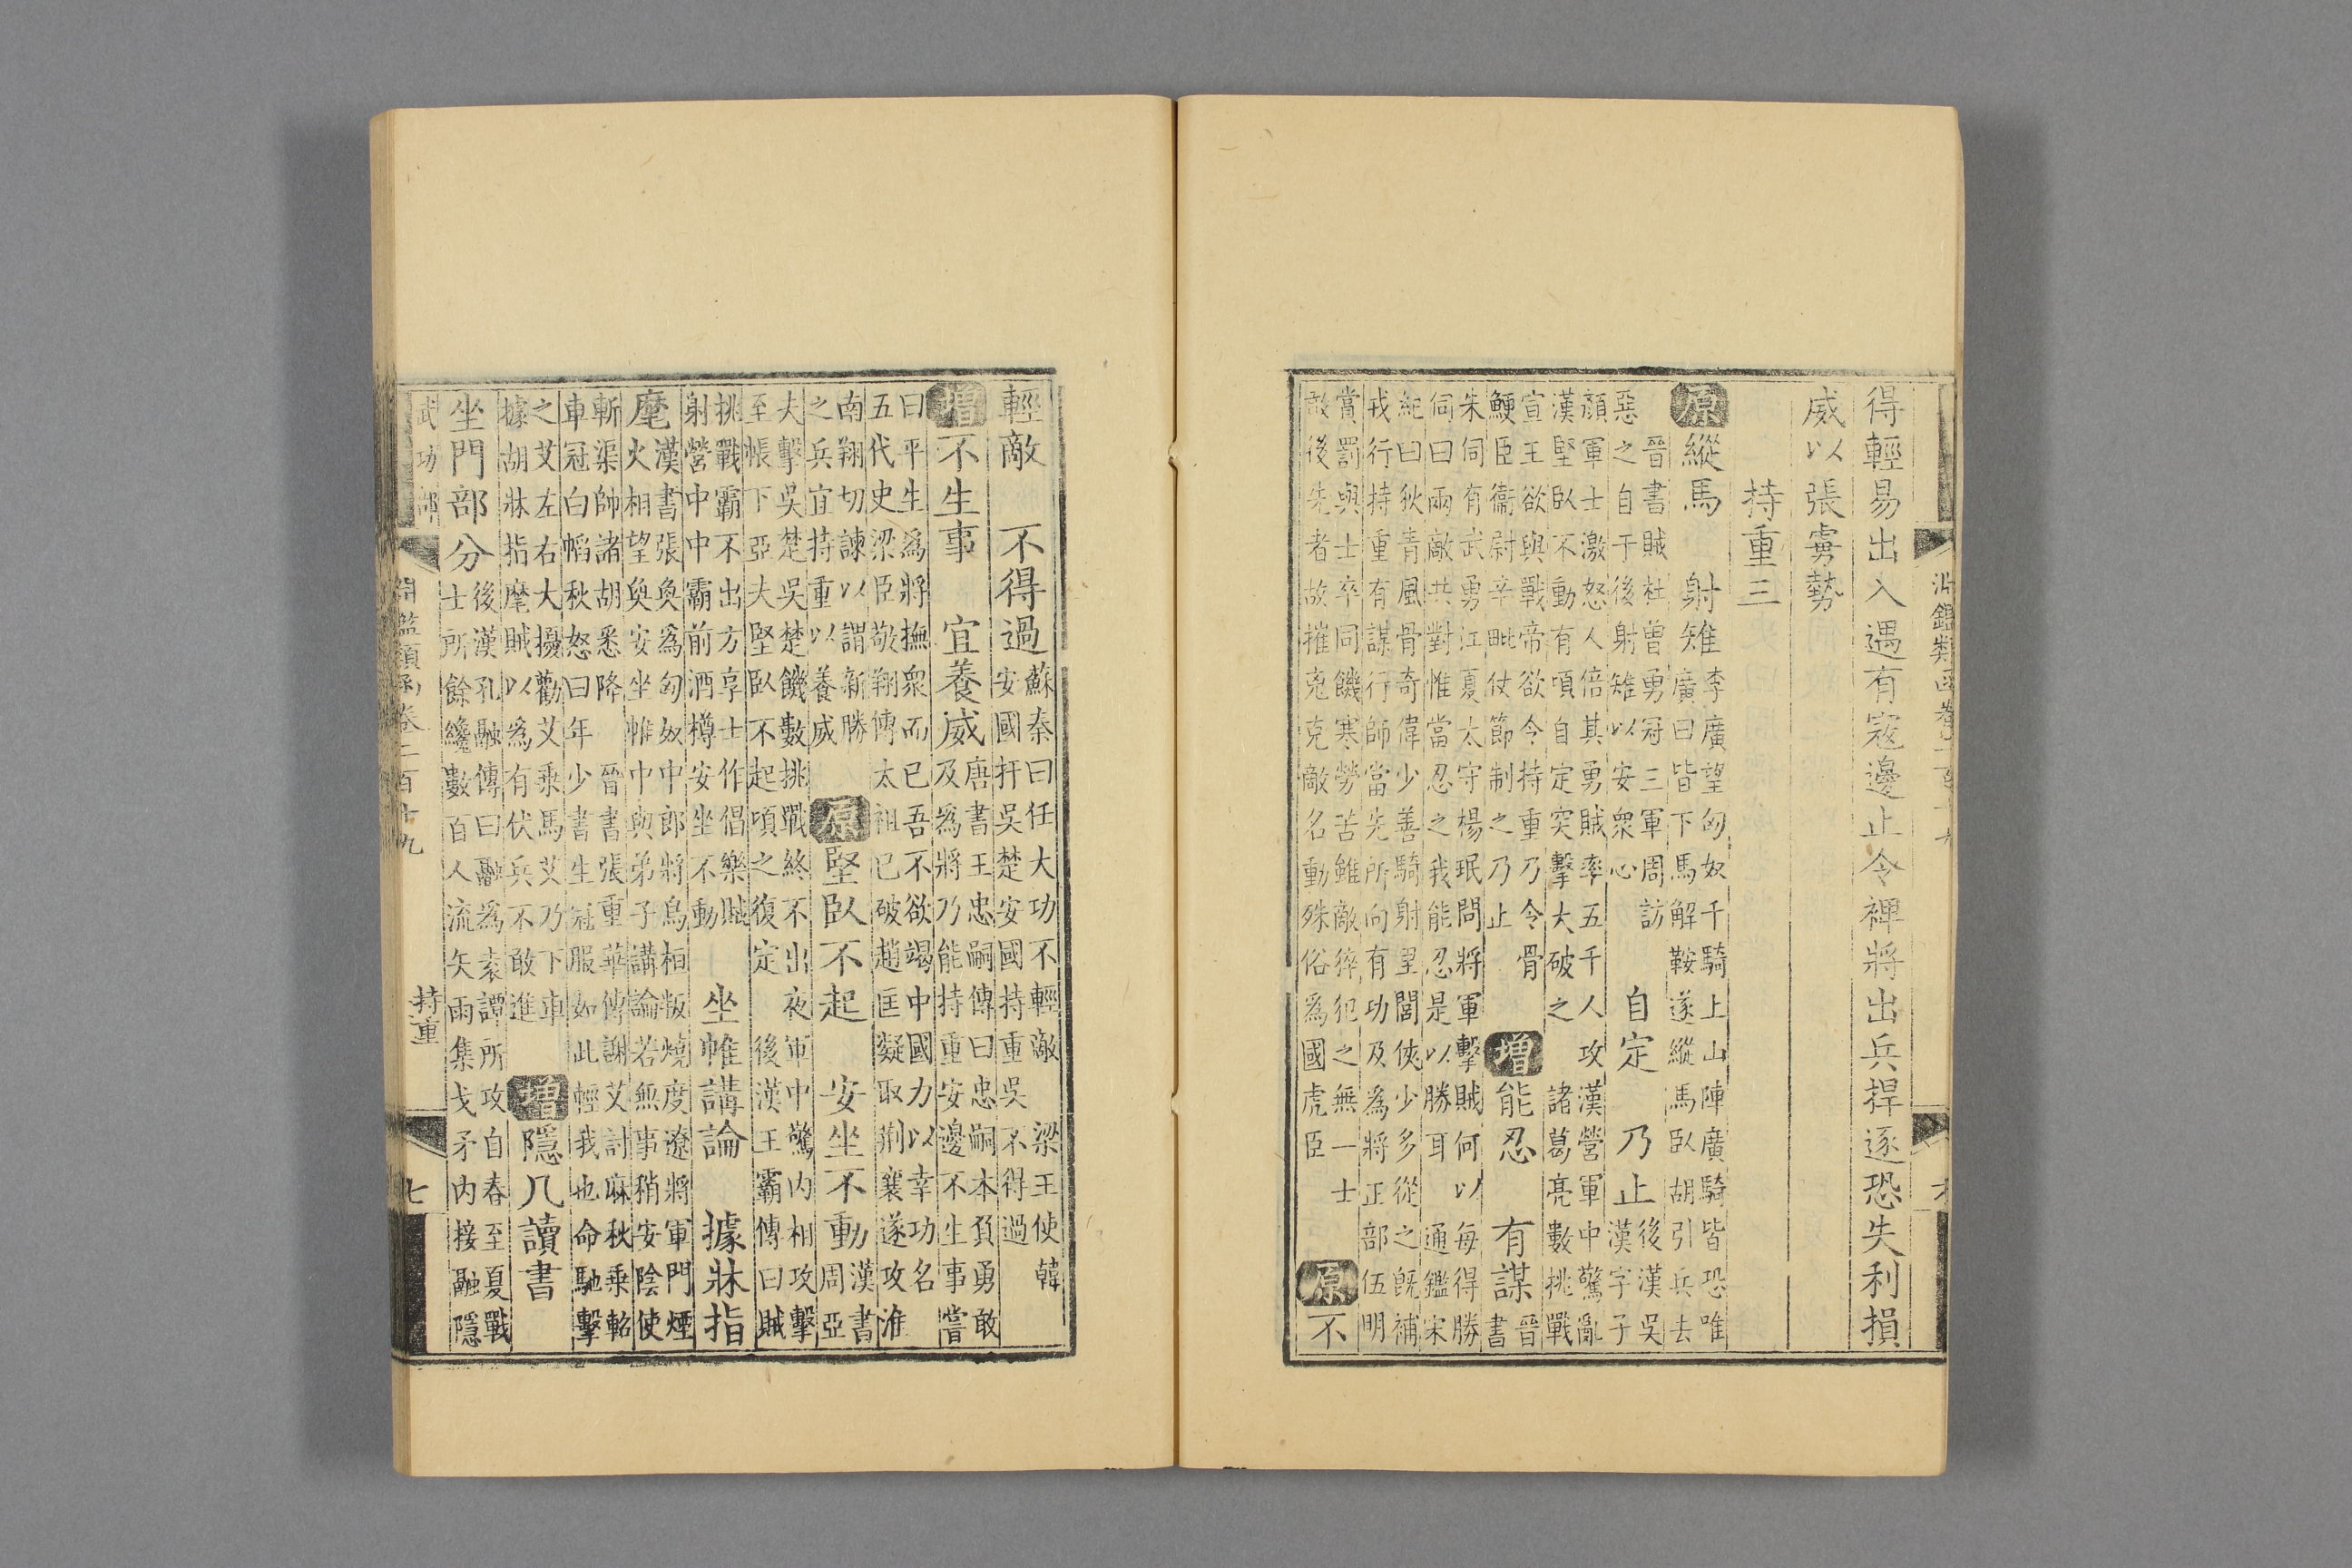 得輕易出入遇有寇邊止令禆將出兵捍逐恐失利損
威以張虜勢
持重三
原縱馬 射雉
李廣望匈奴千騎上山陣廣騎皆恐唯
廣曰皆下馬解鞍遂縱馬臥胡引兵去
晉書賊杜曾勇冠三軍周訪
惡之自于後射雉以安衆心
自定 乃止
後漢吳
漢字子
顏軍士激怒人倍其勇賊率五千人攻漢營軍中驚亂
漢堅臥不動有頃自定突擊大破之 諸葛亮數挑戰
宣王欲與戰帝欲令持重乃令骨
鯁臣衞尉辛毗仗節制之乃止
增能忍 有謀
晉
書
朱伺有武勇江夏太守楊珉問將軍擊賊何以每得勝
伺曰兩敵共對惟當忍之我能忍是以勝耳 通鑑宋
紀曰狄青風骨奇偉少善騎射里閭俠少多從之旣補
戎行持重有謀行師當先所向有功及爲將正部伍明
賞罰與士卒同饑寒勞苦雖敵猝犯之無一士
敢後先者故摧兇克敵名動殊俗爲國虎臣
原不
輕敵 不得過
蘇秦曰任大功不輕敵 梁王使韓
安國扞吳楚安國持重吳不得過
增不生事 宜養威
唐書王忠嗣傳曰忠嗣本負勇敢
及爲將乃能持重安邊不生事嘗
曰平生爲將撫衆而已吾不欲竭中國力以幸功名
五代史梁臣敬翔傳太祖已破趙匡凝取荆襄遂攻淮
南翔切諫以謂新勝
之兵宜持重以養威
原堅臥不起 安坐不動
漢書
周亞
夫擊吳楚吳楚饑數挑戰終不出夜軍中驚内相攻擊
至帳下亞夫堅臥不起頃之復定 後漢王霸傳曰賊
挑戰霸不出方享士作倡樂賊
射營中中霸前酒樽安坐不動
坐帷講論 據牀指
麾
漢書張奐爲匈奴中郎將烏桓叛燒度遼將軍門煙
火相望奐安坐帷中與弟子講論若無事稍安陰使
斬渠帥諸胡悉降 晉書張重華傳謝艾討麻秋乘軺
車冠白幍秋怒曰年少書生冠服如此輕我也命馳擊
之艾左右大擾勸艾乘馬艾乃下車
據胡牀指麾賊以爲有伏兵不敢進
增隱几讀書
坐門部分
後漢孔融傳曰融爲袁譚所攻自春至夏戰
士所餘纔數百人流矢雨集戈矛内接融隱
武功部
淵鑑類函卷二百十九
持重
七